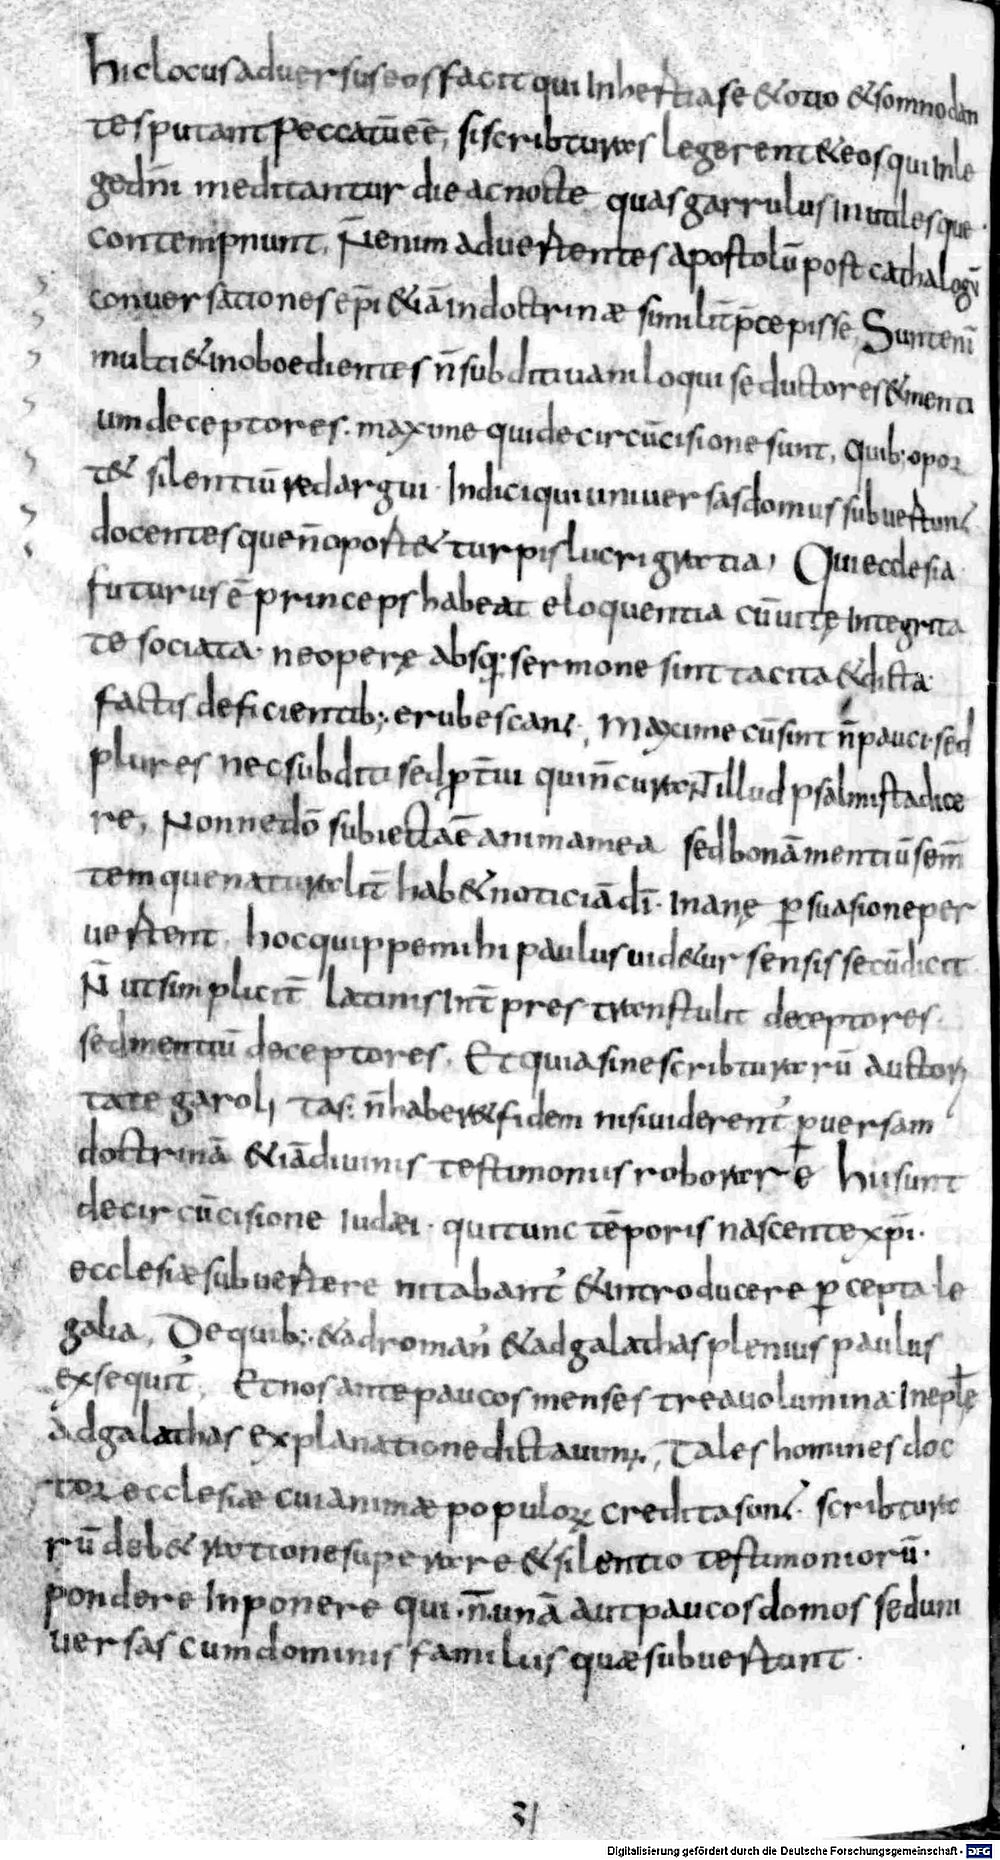 hiclocus adversus eos facit qui Inhertia se & otio & somno dan
tes putant peccatū eē, si scribturas legerent & eos qui Inle
gedn̄i meditantur die ac nocte quas garrulus Inutilesque
contempnunt, N̄enim advertentes apostolū post cathalogū
conversationes ep̄i & iā in doctrinæ similit̄ p̄cepisse, Sunt eni
multi & inoboedientes n̄ subditi vaniloqui seductores & menti
um deceptores. maxime qui de circūcisione sunt, quib; opor
t& silentiū redargui · Indici qui universas domus subvertunt
docentes que n̄ oport& turpis lucri gratia, Qui ecclesia
futurus ē princeps habeat eloquentia cū vitę Integrita
te sociata · ne operę absq; sermone sint tacita & dicta
factis deficientib; erubescant, Maxime cū sint n̄ pauci · sed
plures nec subditi sed p̄t̄vi qui n̄ curant illud psalmista dice
re, Nonne dō subiecta ē anima mea sed bonā mentiū sem̄
tem que naturalit̄ hab& noticiā dī · Inanę persuasione per
vertent, hoc quippe mihi paulus vid&ur sensisse cū dicit
N̄ ut simplicit̄ latinis Int̄pres transtulit deceptores.
sed mentiū deceptores, Et quia sine scribturarū auctori
tate garoli tas; n̄ haber& fidem nisi viderent̄ pversam
doctrinā &iā divinis testimoniis roborare hii sunt
de circūcisione iudæi · qui tunc tēporis nascente xp̄i ·
ecclesiæ subvertere nitabant̄ & introducere p̄cepta le
galia, De quib; & ad roman̄ & ad galathas plenius paulus
exsequit̄, Et nos ante paucos menses trea volumina · In eplę
ad galathas explanatione dictavim;, Tales homines doc
tor ecclesiæ cui animæ populor̄ credita sunt · scribtura
rū deb& ratione superare & silentio testimoniorū ·
pondere Inponere qui · n̄ unā aut paucos domos sed uni
versas cum dominis familiis quæ subvertunt ·
31
Digitalisierung gefördert durch die Deutsche Forschungsgemeinschaft - DFG